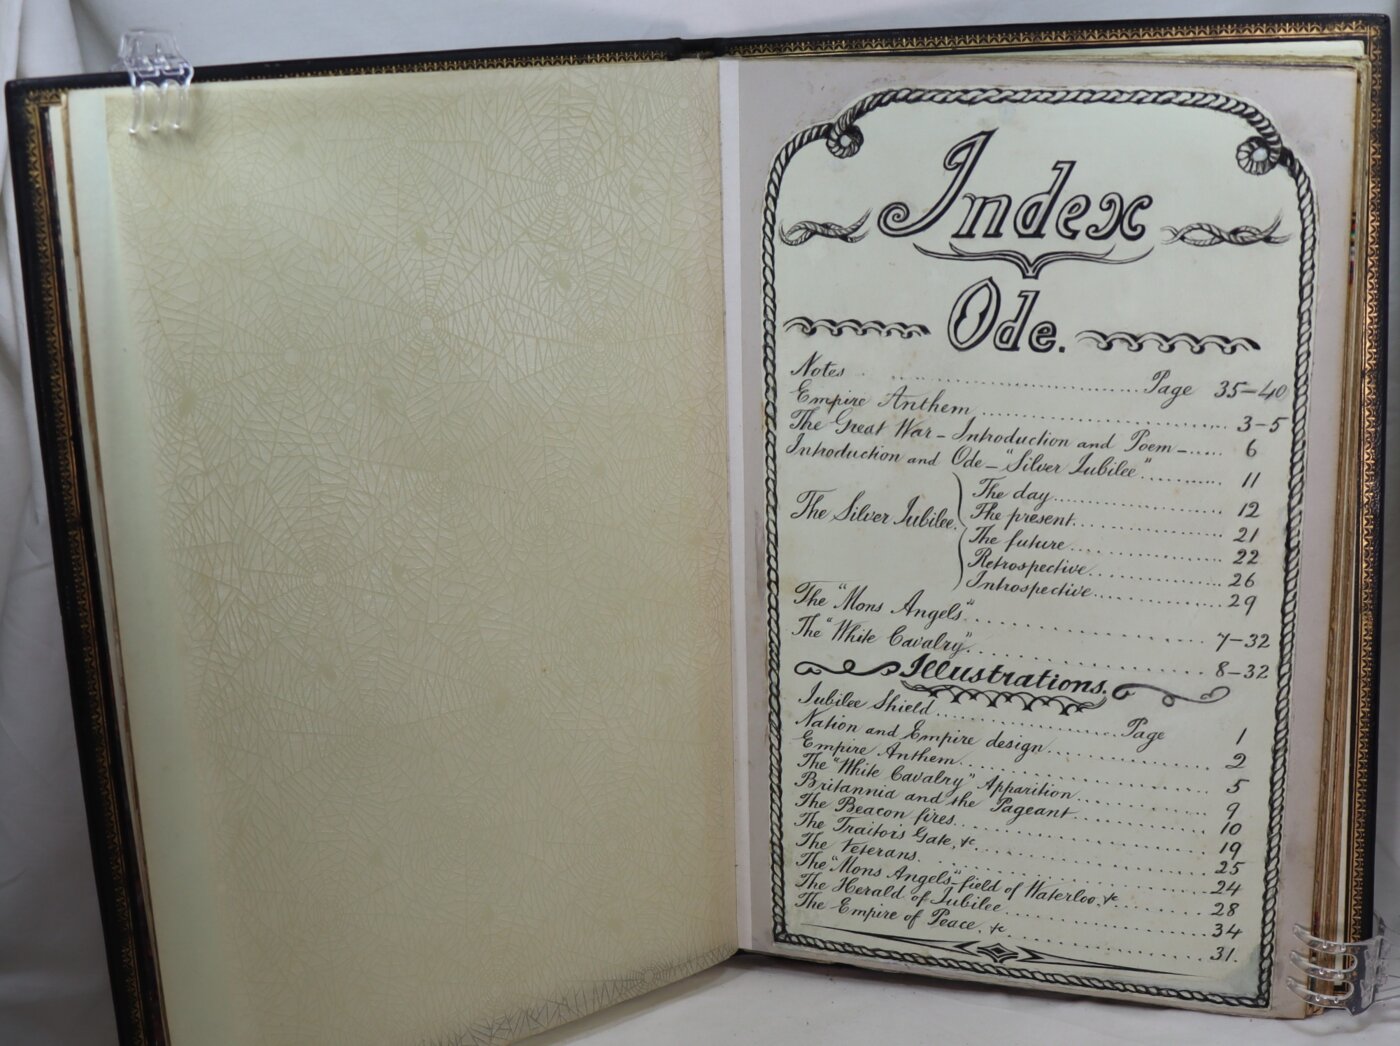 Index
Ode.
Notes ........ Page 35-40
Empire Anthem ........ 3-5
The Great War - Introduction and Poem - ........ 6
Introduction and Ode - "Silver Jubilee" ........ 11
The Silver Jubilee. The day ........ 12
The present. ........ 21
The future ........ 22
Retrospective ........ 26
Introspective ........ 29
The "Mons Angels" ........ 7-32
The "White Cavalry" ........ 8-32
Illustrations.
Jubilee Shield ........ Page 1
Nation and Empire design ........ 2
Empire Anthem ........ 5
The "White Cavalry" Apparition ........ 9
Britannia and the Pageant ........ 10
The Beacon fires ........ 19
The Traitors Gate, &c ........ 25
The Veterans ........ 24
The "Mons Angels" - field of Waterloo, &c ........ 28
The Herald of Jubilee ........ 34
The Empire of Peace, &c ........ 31.